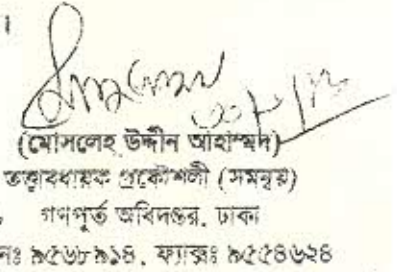 ।
(মোসলেহ উদ্দীন আহাম্মদ)
তত্ত্বাবধায়ক প্রকৌশলী (সমন্বয়)
গণপূর্ত অধিদপ্তর, ঢাকা
নঃ ৯৫৬৮৯১৪, ফ্যাক্সঃ ৯৫৫৪৬২৪